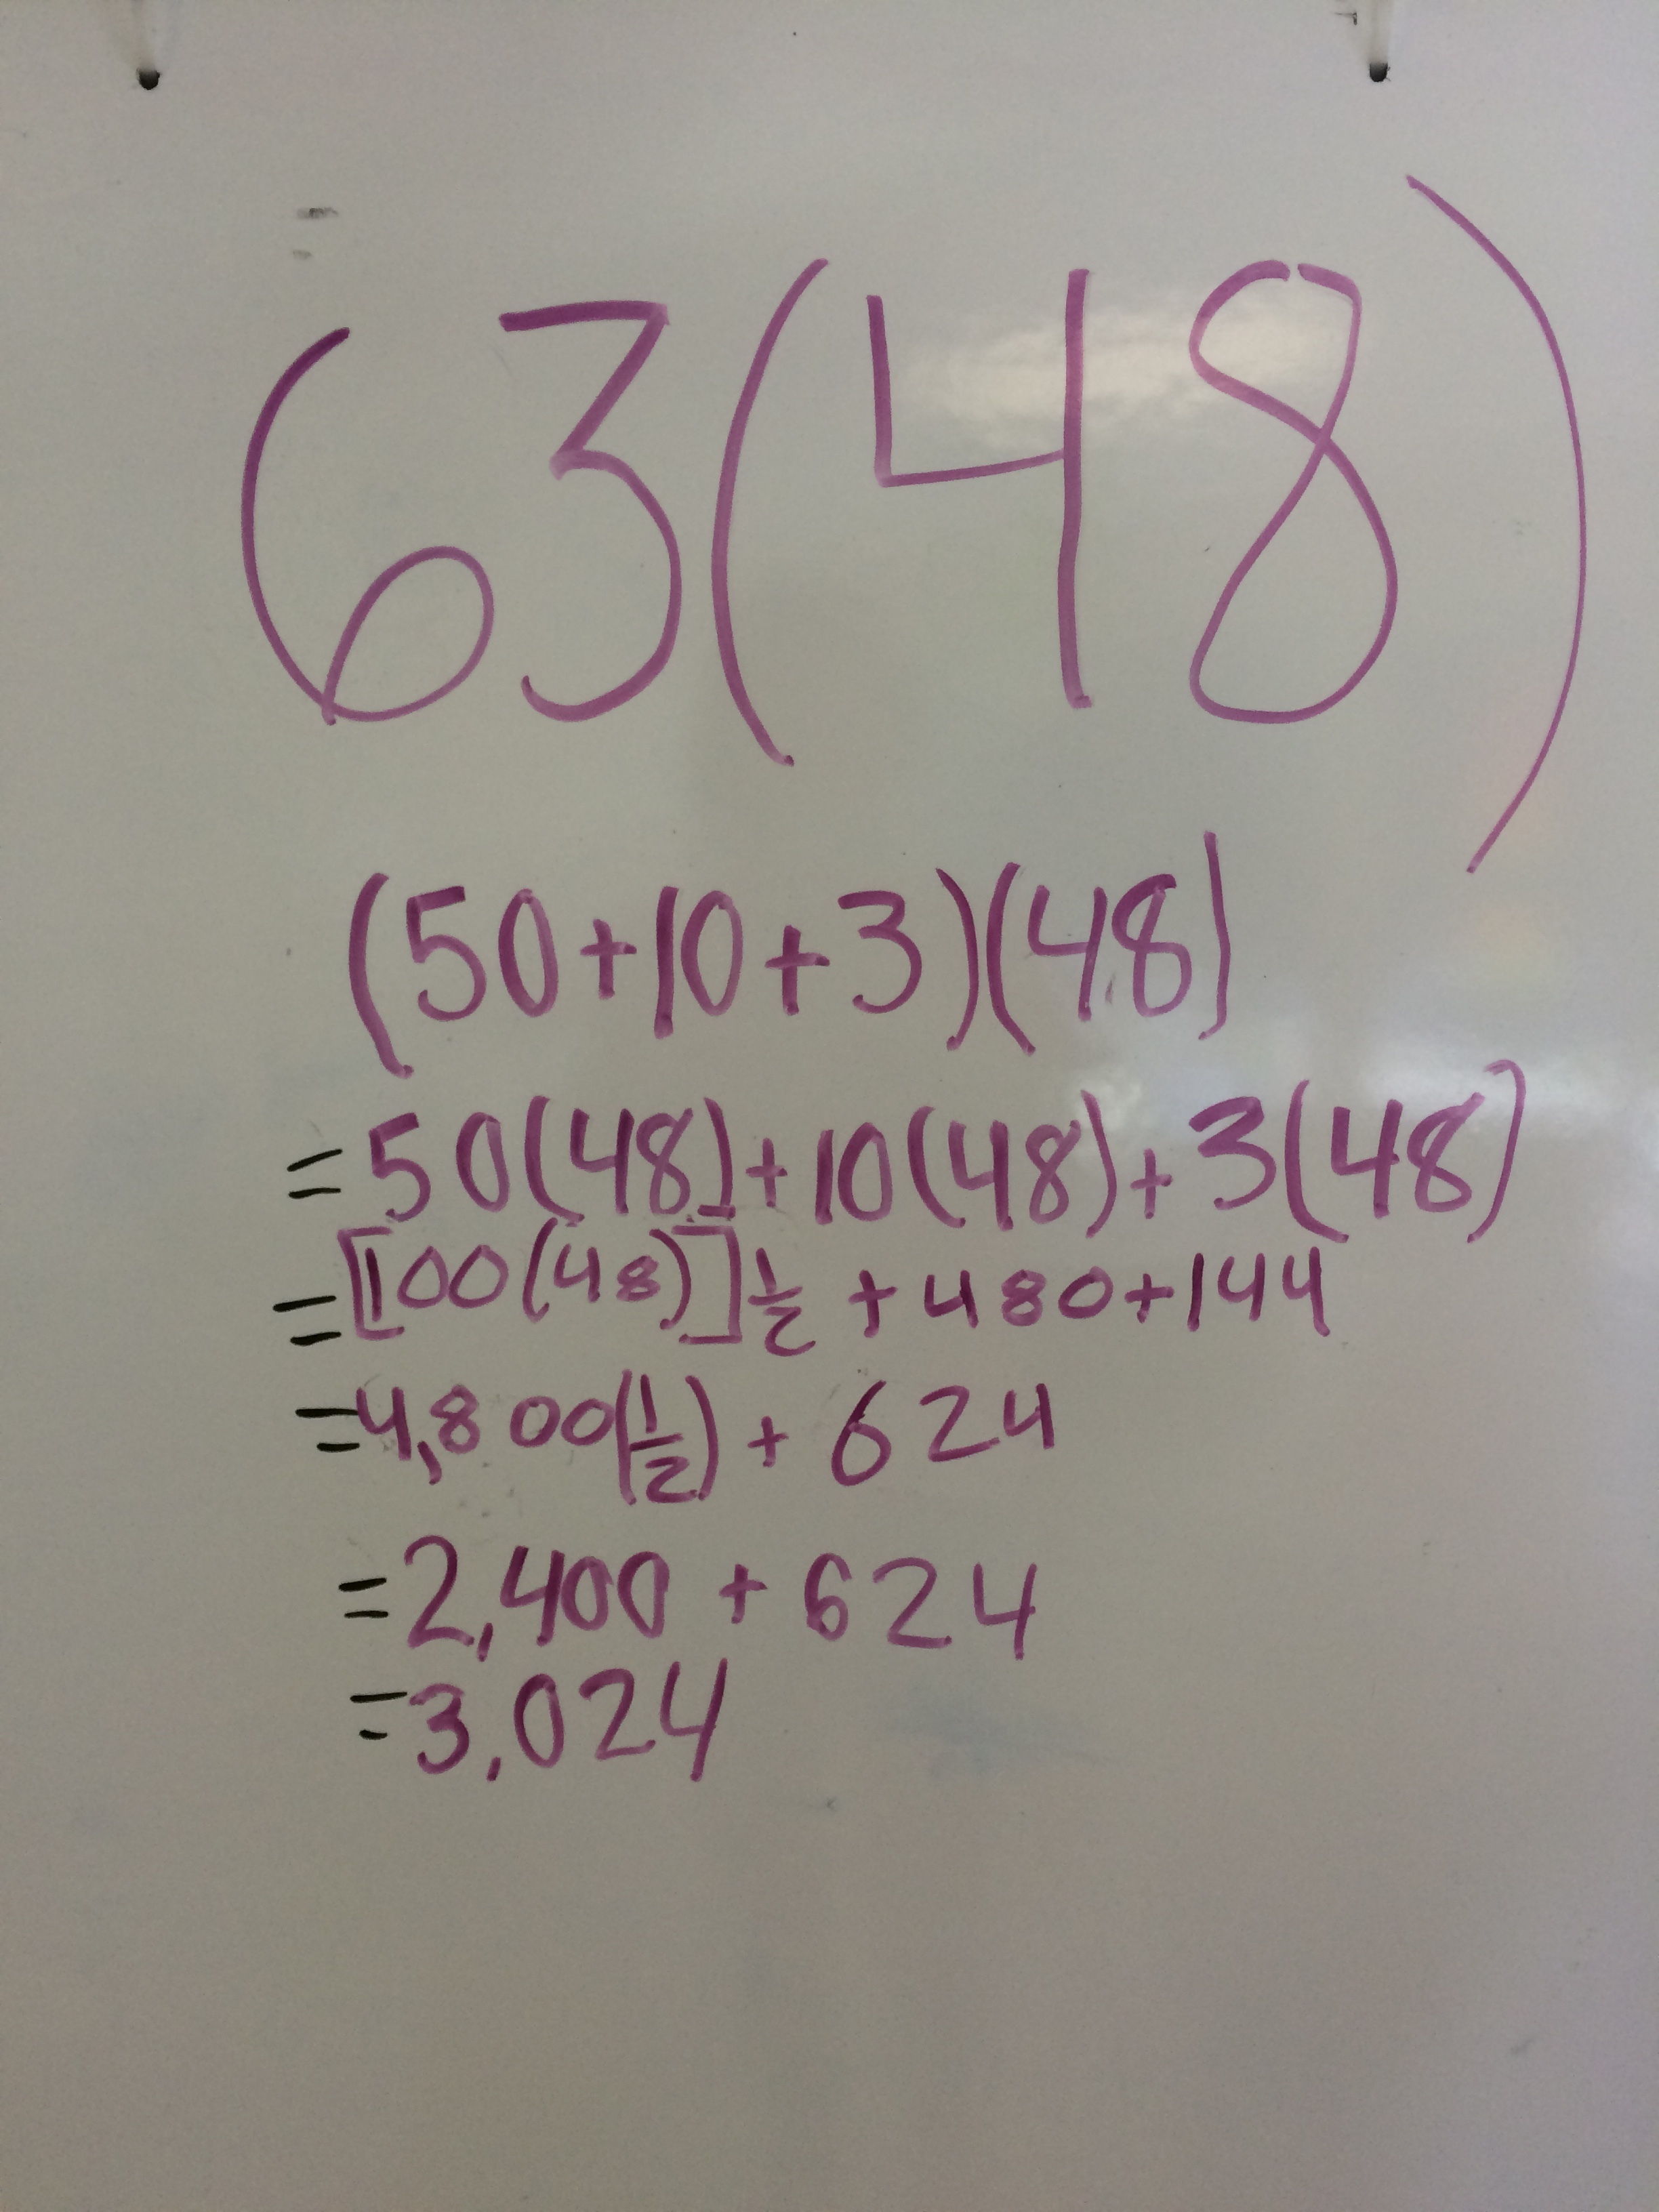 63(48)
(50+10+3)(48)
=50(48)+10(48)+3(48)
=[100(48)]½ + 480+144
=4,800(½) + 624
=2,400 + 624
=3,024